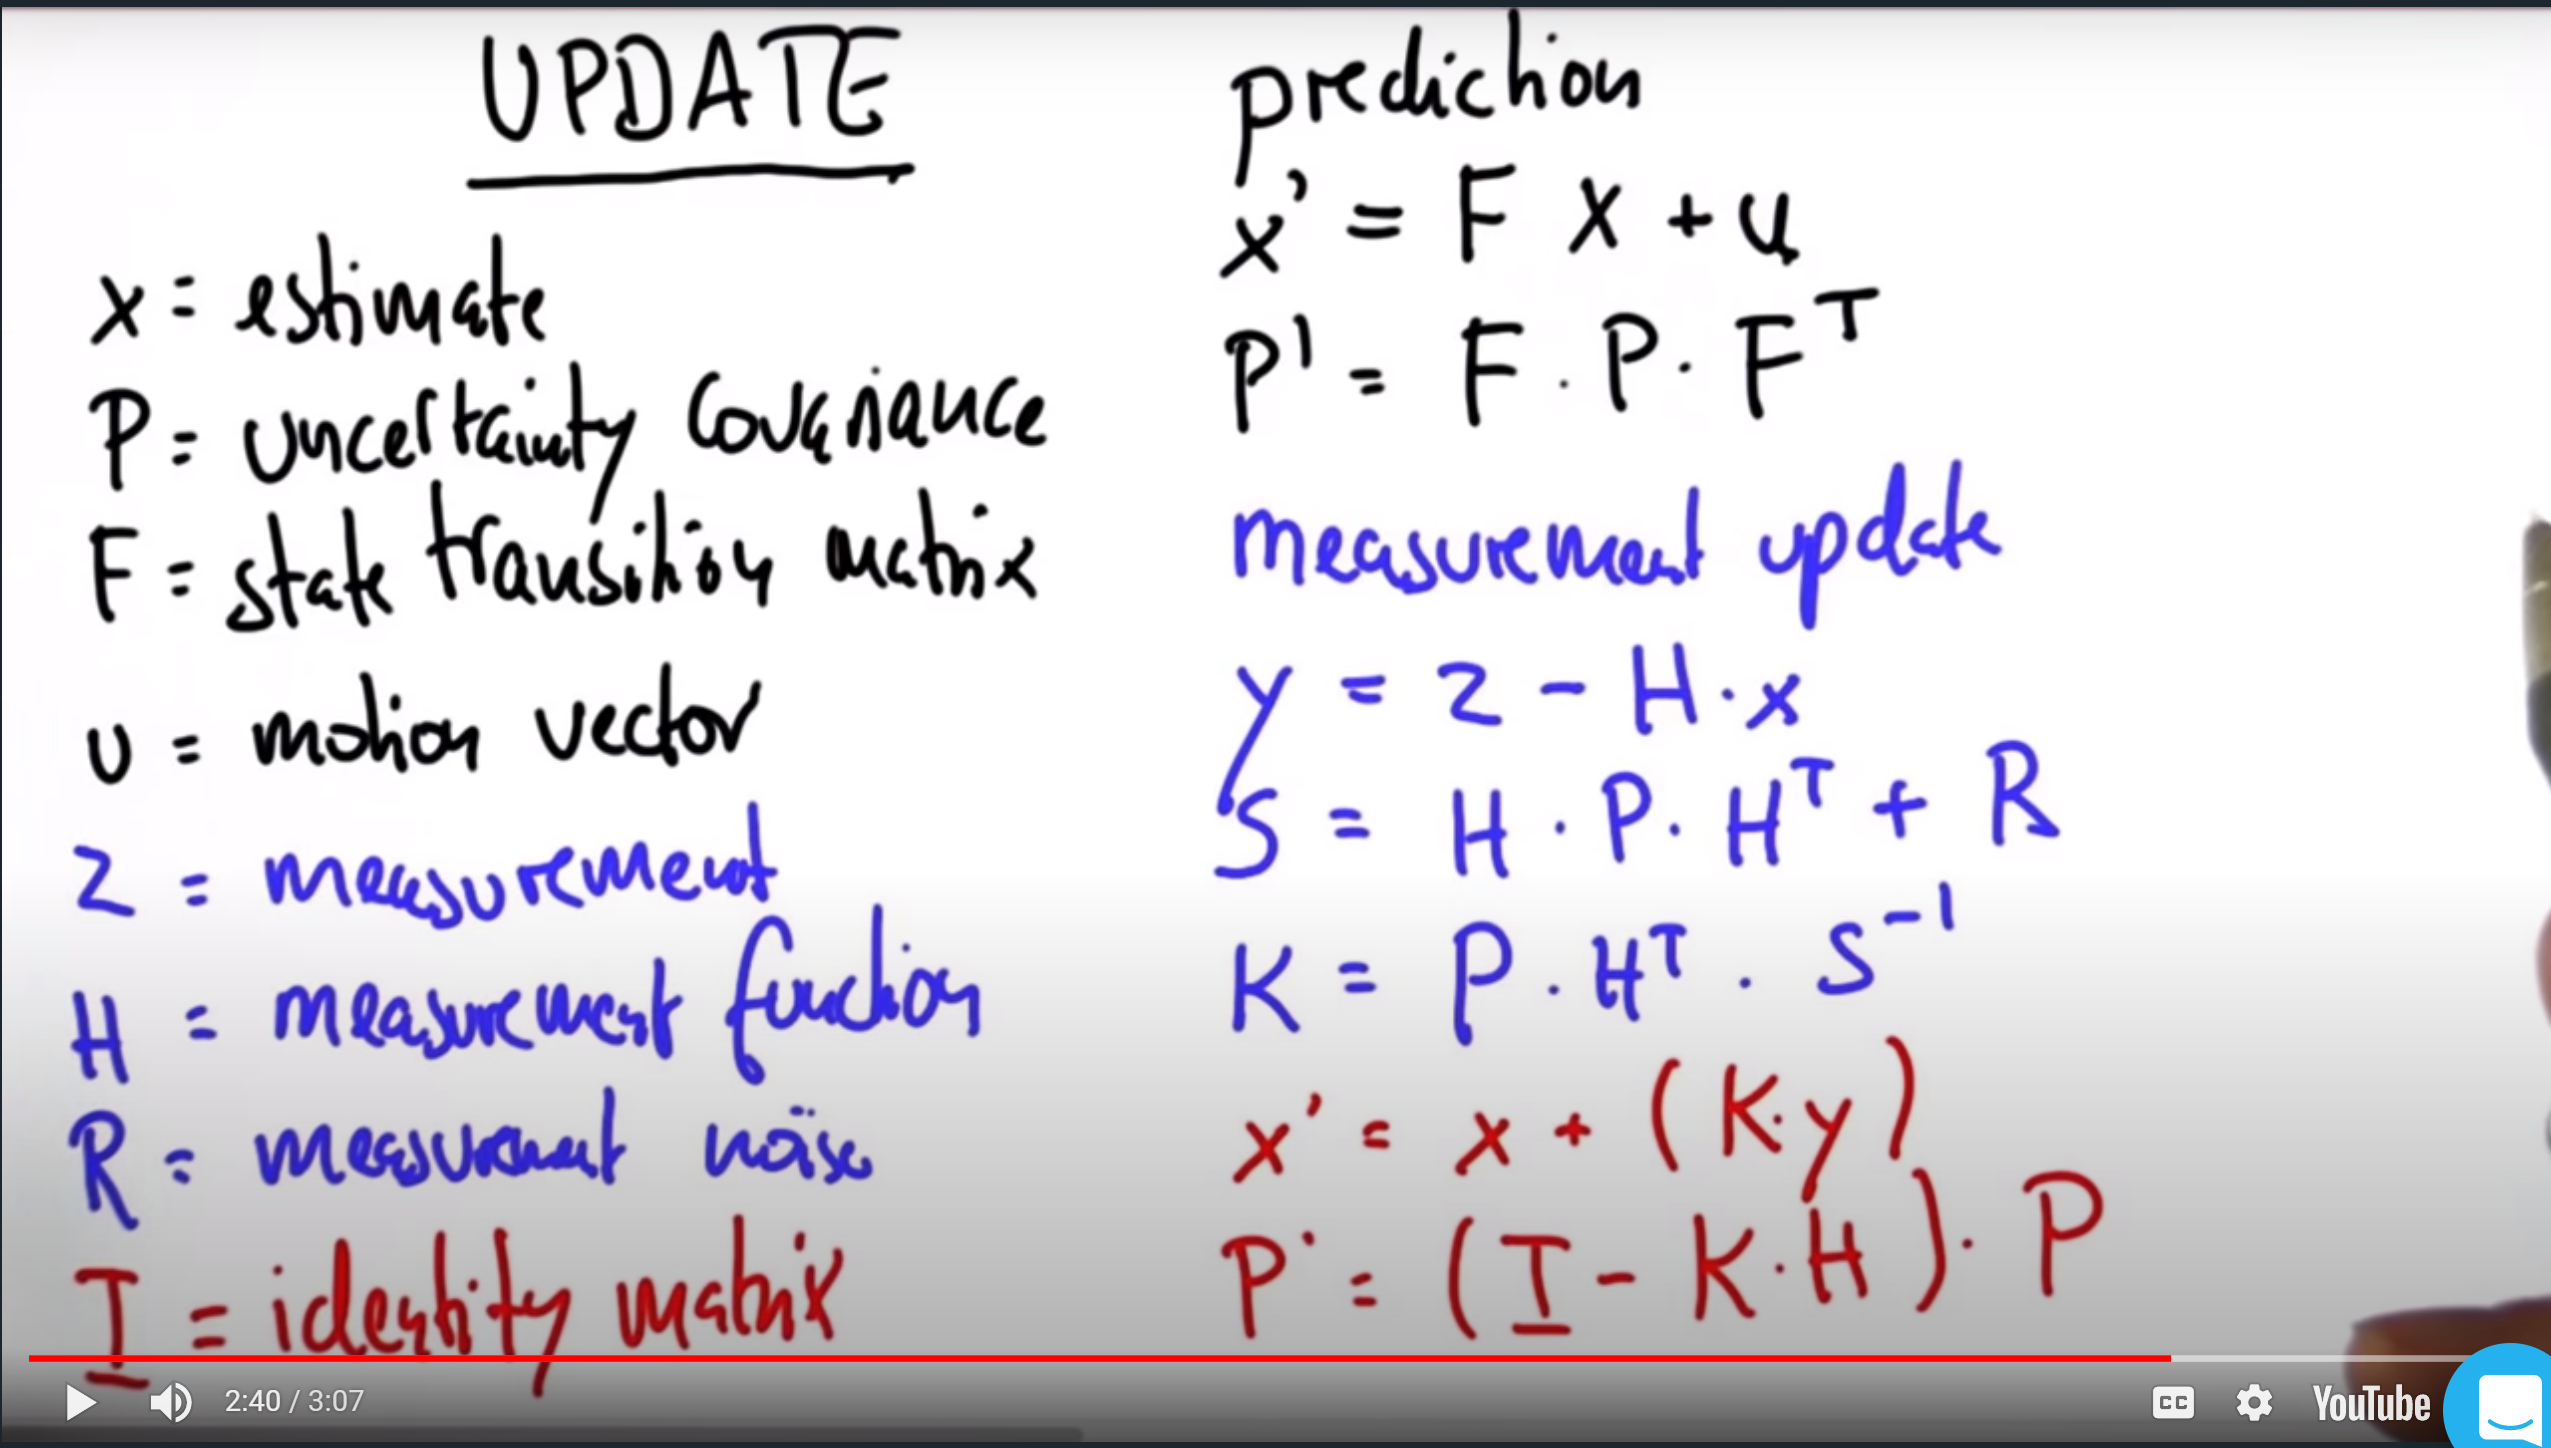 UPDATE
x = estimate
P = uncertainty covariance
F = state transition matrix
u = motion vector
z = measurement
H = measurement function
R = measurement noise
I = identity matrix
prediction
x' = F x + u
P' = F · P · Fᵀ
measurement update
y = z - H · x
S = H · P · Hᵀ + R
K = P · Hᵀ · S⁻¹
x' = x + (K · y)
P' = (I - K · H) · P
2:40 / 3:07
CC
YouTube